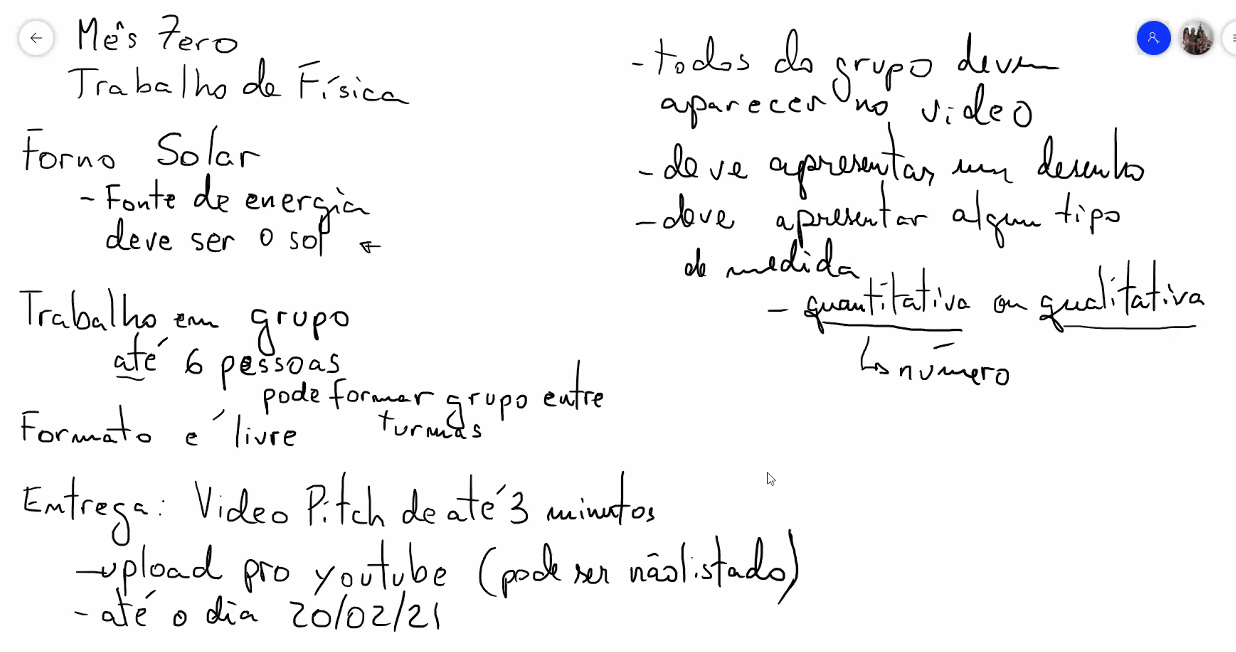 Mês Zero
Trabalho de Física
Forno Solar
- Fonte de energia
deve ser o sol ←
Trabalho em grupo
até 6 pessoas
pode formar grupo entre
turmas
Formato é livre
Entrega: Video Pitch de até 3 minutos
- upload pro youtube (pode ser não listado)
- até o dia 20/02/21
- todos do grupo devem
aparecer no video
- deve apresentar um desenho
- deve apresentar algum tipo
de medida
- quantitativa ou qualitativa
↳ número